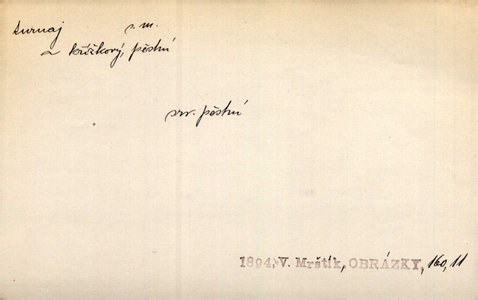 turnaj s. m.
~ křížkový, pěstní
srv. pěstní
1894, V. Mrštík, OBRÁZKY, 160, 11